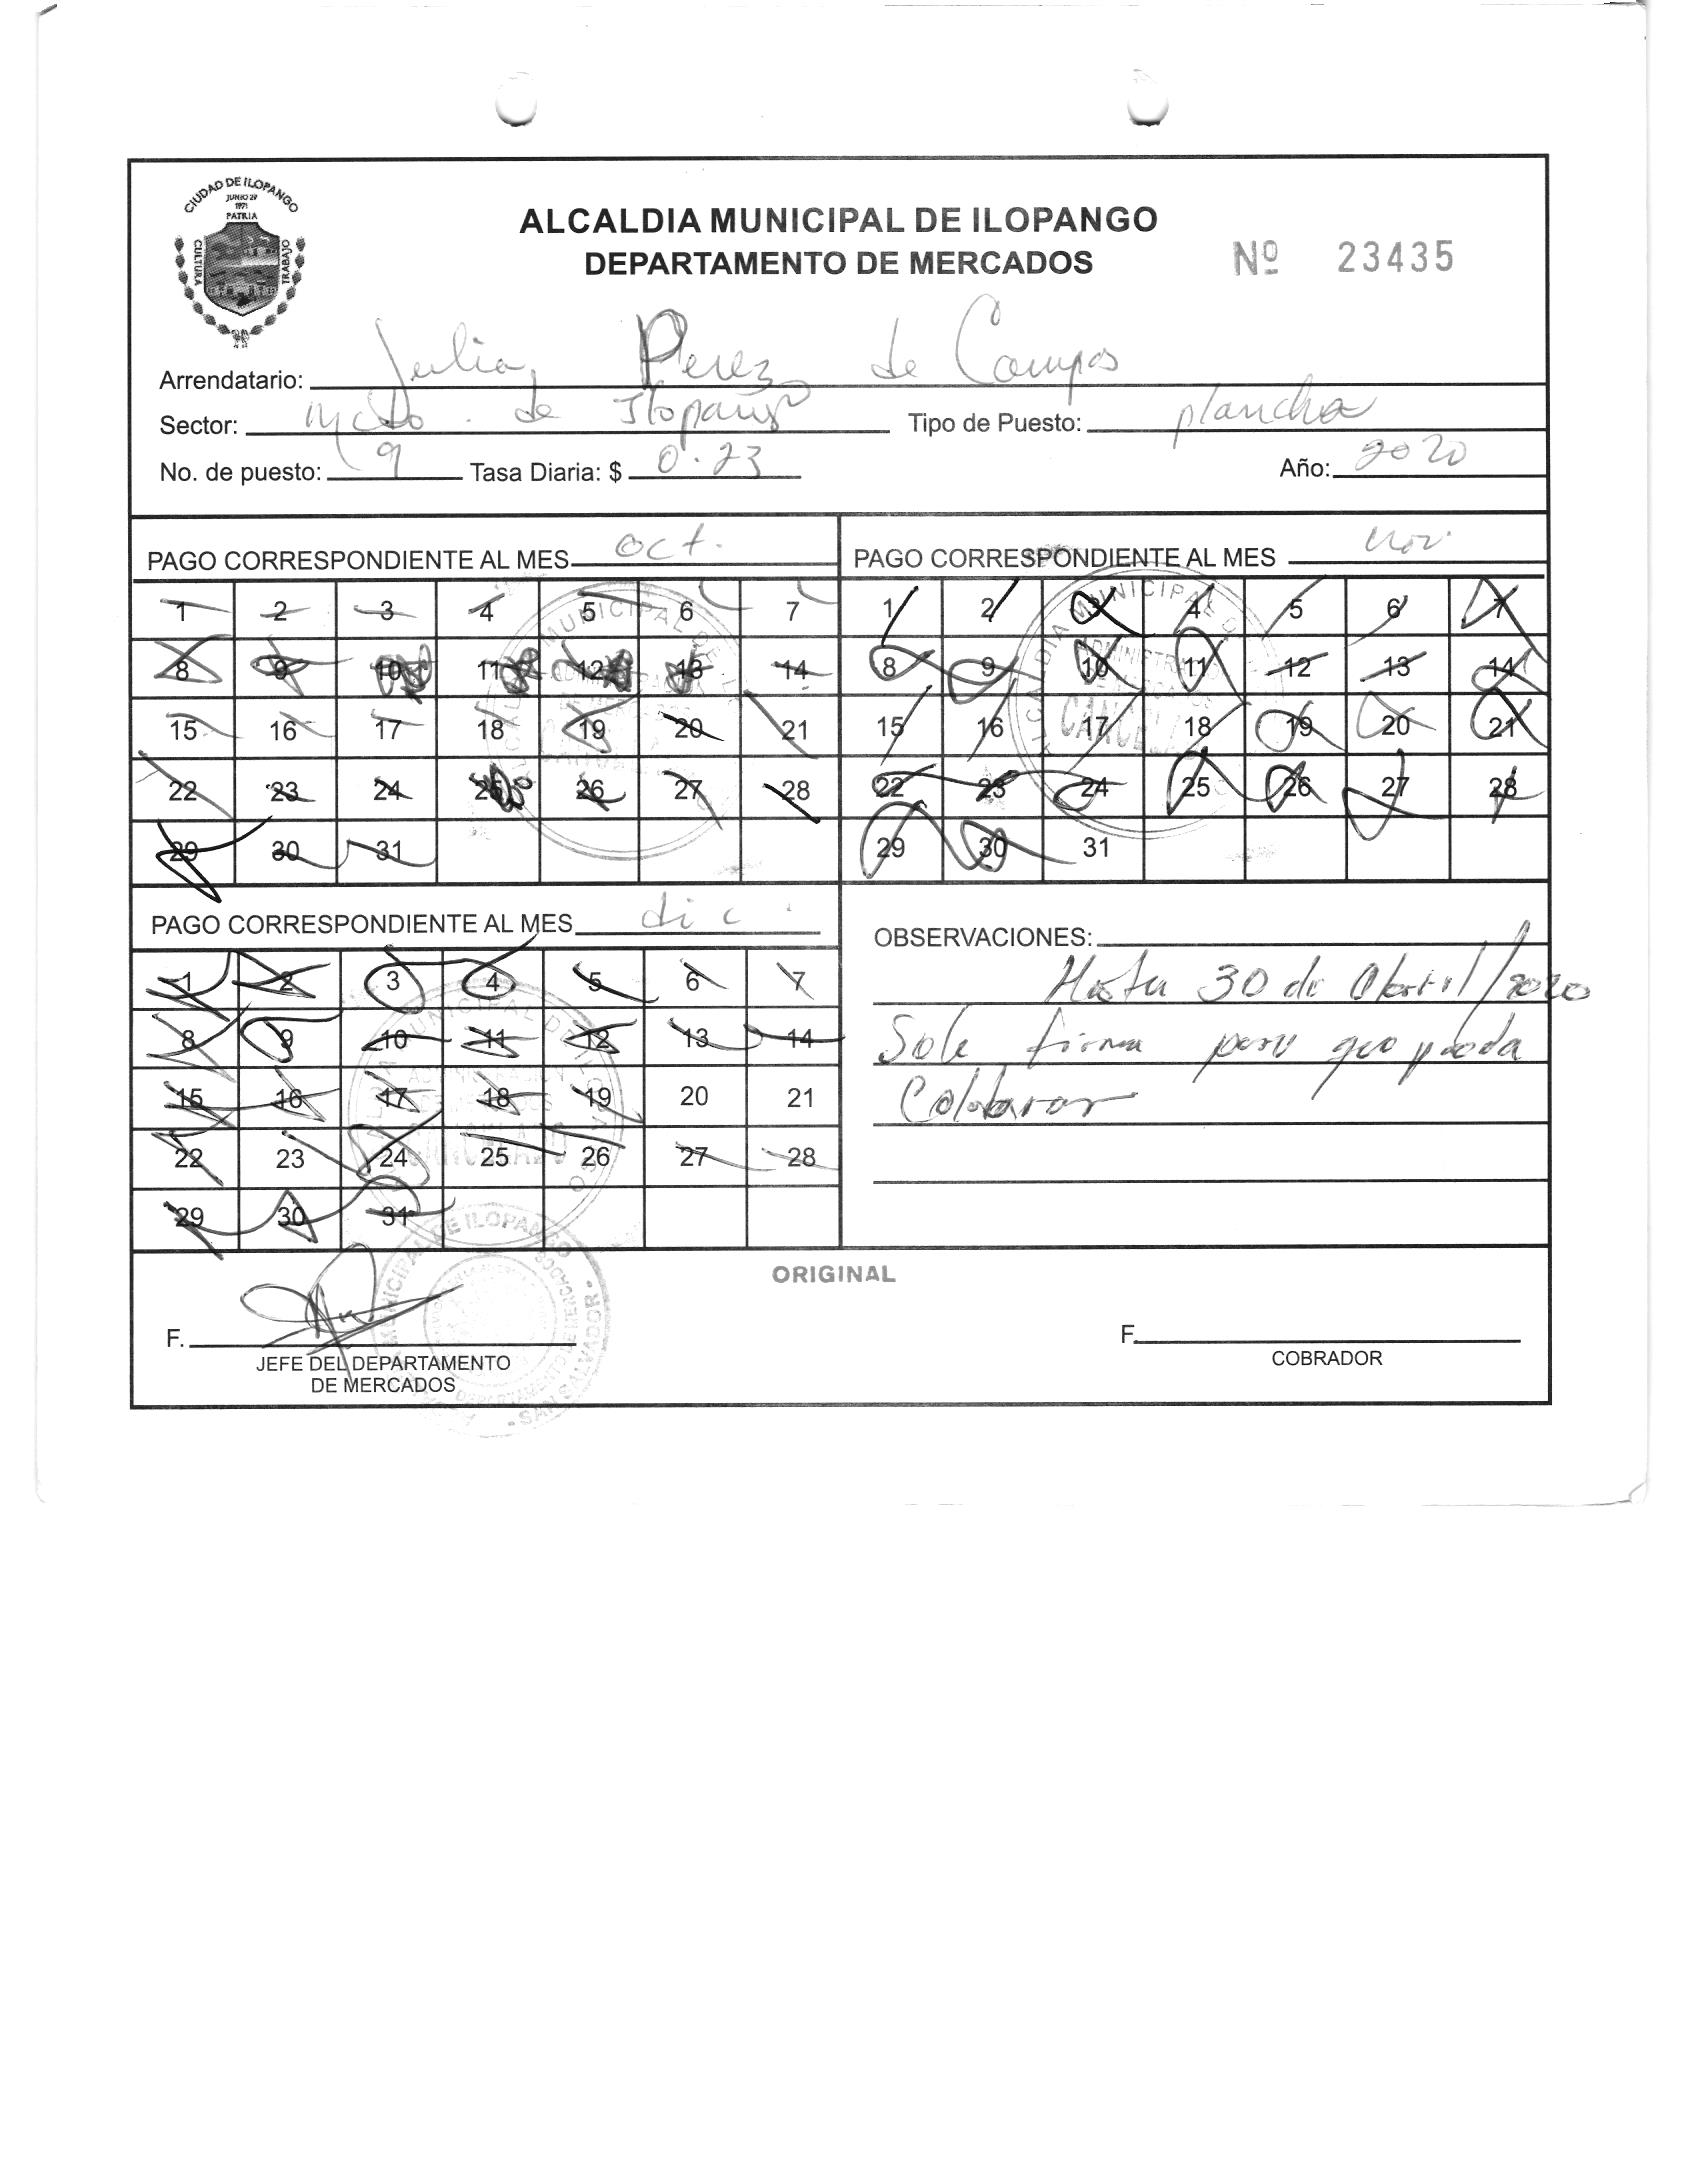 CIUDAD DE ILOPANGO
JUNIO 29
1971
PATRIA
CULTURA
TRABAJO
ALCALDIA MUNICIPAL DE ILOPANGO
DEPARTAMENTO DE MERCADOS
Nº 23435
Arrendatario: Julia Perez de Campos
Sector: Mcdo. de Ilopango Tipo de Puesto: plancha
No. de puesto: 9 Tasa Diaria: $ 0.23 Año: 2020
PAGO CORRESPONDIENTE AL MES oct.
1 2 3 4 5 6 7
8 9 10 11 12 13 14
15 16 17 18 19 20 21
22 23 24 25 26 27 28
29 30 31
PAGO CORRESPONDIENTE AL MES nov.
1 2 3 4 5 6 7
8 9 10 11 12 13 14
15 16 17 18 19 20 21
22 23 24 25 26 27 28
29 30 31
PAGO CORRESPONDIENTE AL MES dic.
1 2 3 4 5 6 7
8 9 10 11 12 13 14
15 16 17 18 19 20 21
22 23 24 25 26 27 28
29 30 31
OBSERVACIONES:
Hasta 30 de Abril/2020
Sole firma para que pueda
Colabarar
ORIGINAL
F.
JEFE DEL DEPARTAMENTO
DE MERCADOS
F.
COBRADOR